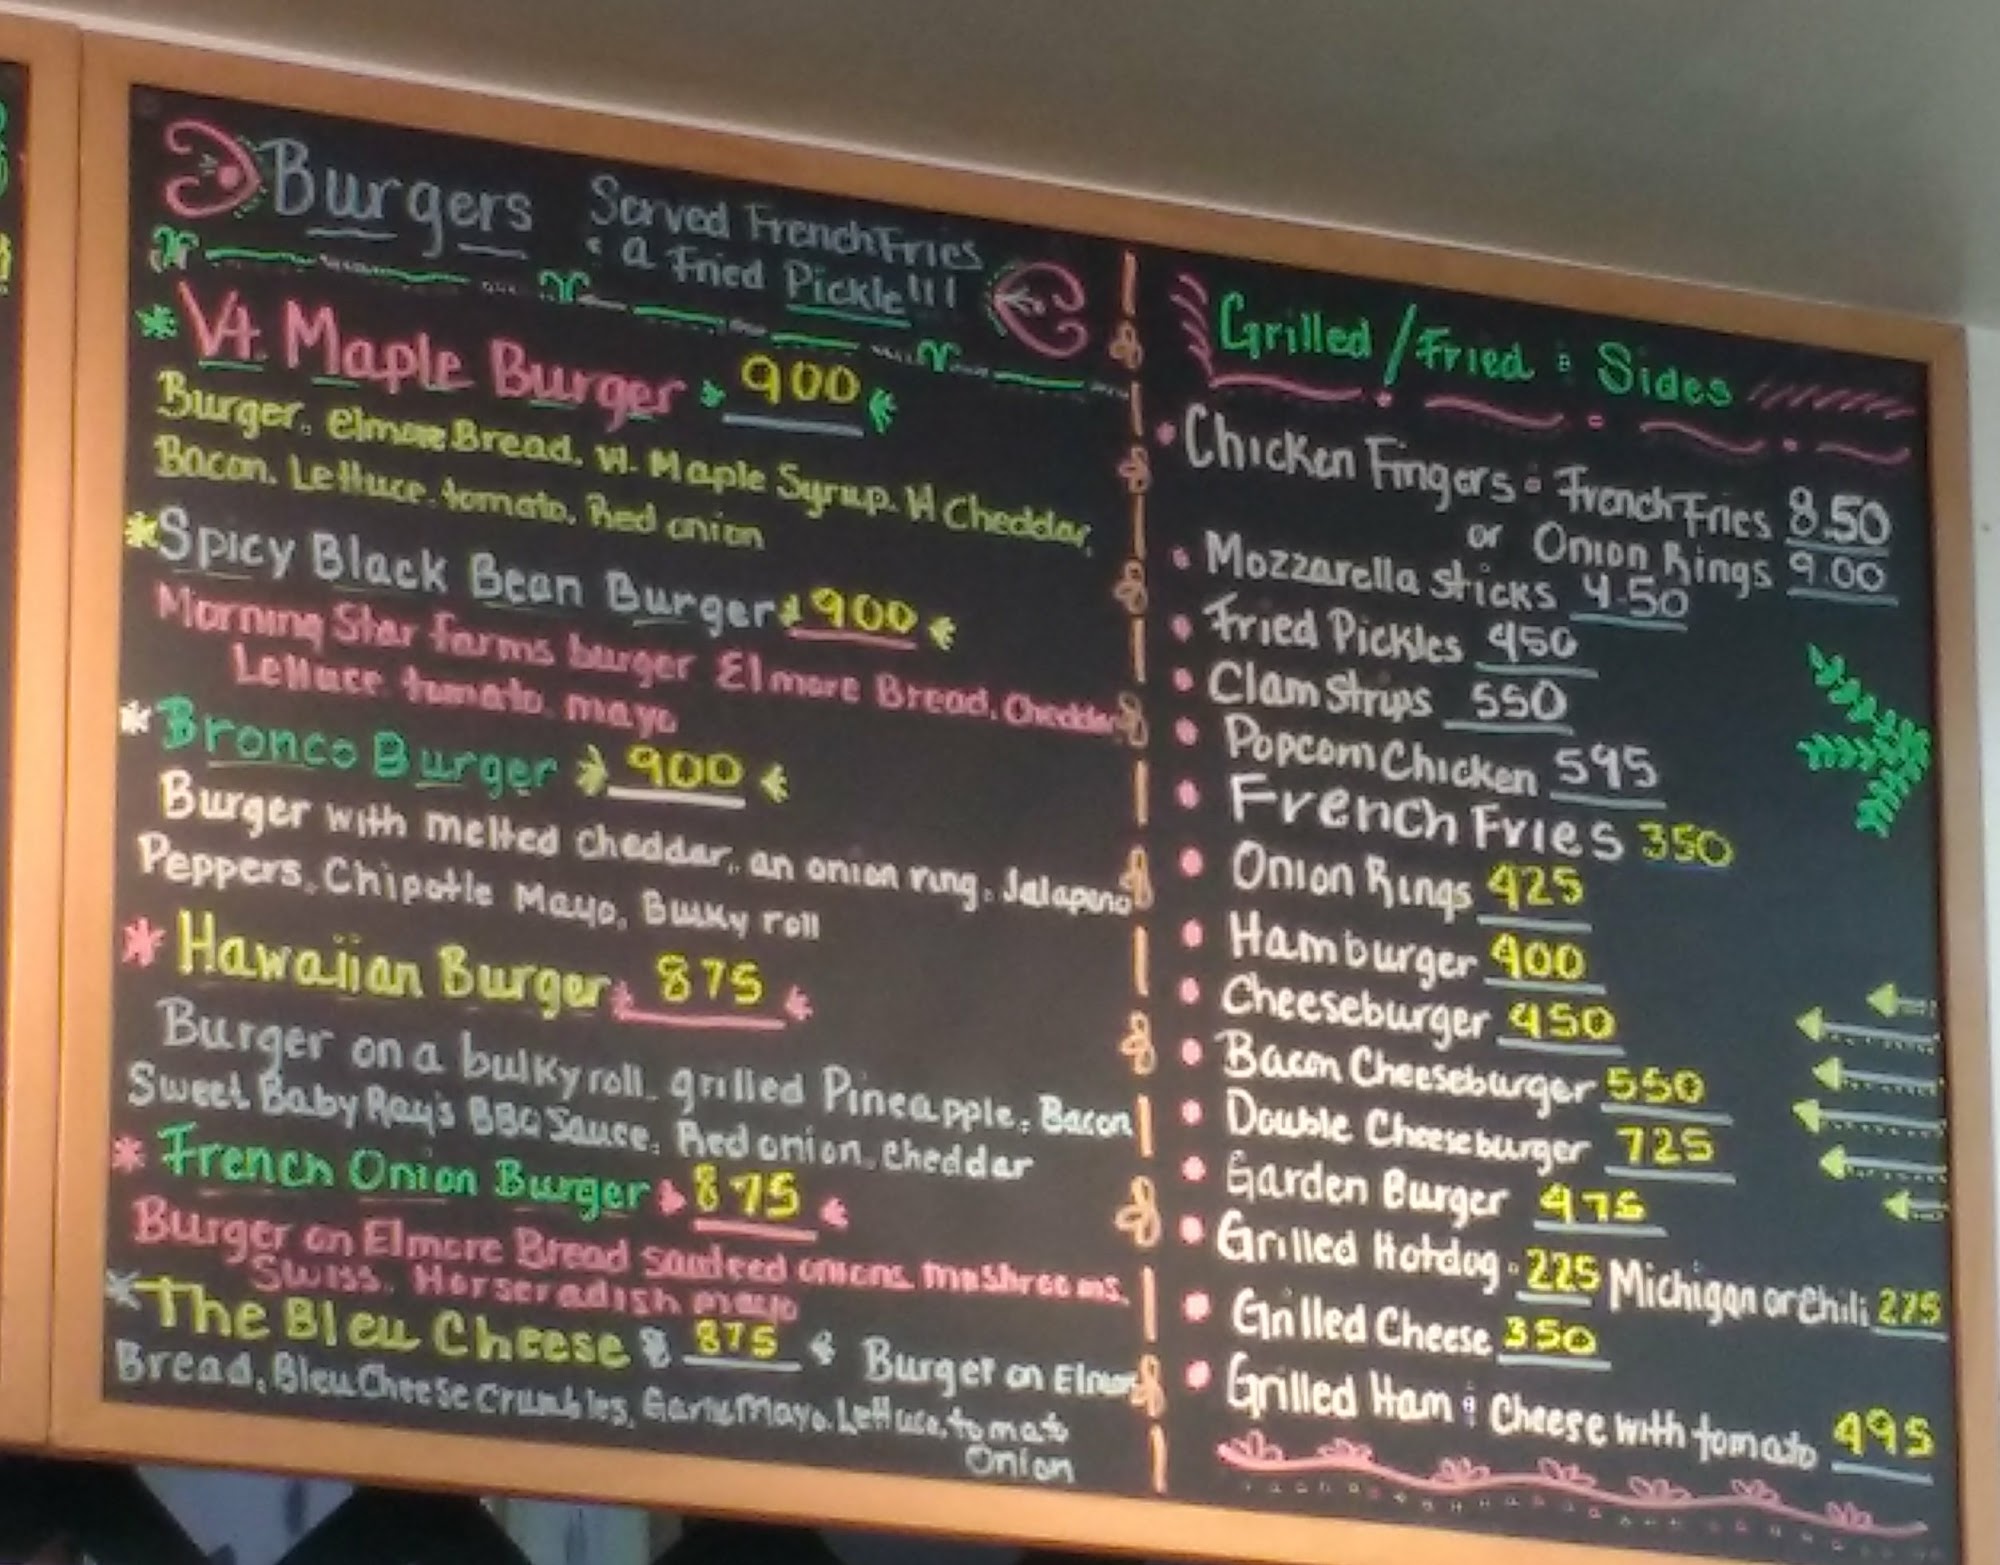 Burgers Served French Fries
& a Fried Pickle!!!
Vt. Maple Burger 900
Burger, Elmore Bread, Vt. Maple Syrup, Vt Cheddar,
Bacon, Lettuce, tomato, Red onion
Spicy Black Bean Burger 900
Morning Star farms burger Elmore Bread, Cheddar
Lettuce tomato, mayo
Bronco Burger 900
Burger with melted Cheddar, an onion ring, Jalapeno
Peppers, Chipotle Mayo, Bulky roll
Hawaiian Burger 875
Burger on a bulky roll, grilled Pineapple, Bacon
Sweet Baby Ray's BBQ Sauce, Red onion, cheddar
French Onion Burger 875
Burger on Elmore Bread sauteed onions, mushrooms,
Swiss, Horseradish mayo
The Bleu Cheese 875 Burger on Elmore
Bread, Bleu Cheese crumbles, Garlic Mayo, Lettuce, tomato
Onion
Grilled / Fried & Sides
Chicken Fingers & French Fries 8.50
or Onion Rings 9.00
Mozzarella Sticks 4.50
Fried Pickles 450
Clam Strips 550
Popcorn Chicken 595
French Fries 350
Onion Rings 425
Hamburger 400
Cheeseburger 450
Bacon Cheeseburger 550
Double Cheeseburger 725
Garden Burger 475
Grilled Hotdog 225 Michigan or Chili 275
Grilled Cheese 350
Grilled Ham & Cheese with tomato 495